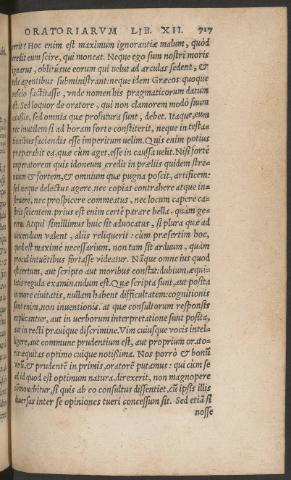 ORATORIARVM LIB. XII. 727
perit? Hoc enim est maximum ignorantiæ malum, quòd
credit eum scire, qui moneat. Neque ego sum nostri moris
ignarus, oblitúsve eorum qui uelut ad arculas sedent, &
tela agentibus subministrant: neque idem Græcos quoque
nescio factitasse, unde nomen his pragmaticorum datum
est. Sed loquor de oratore, qui non clamorem modò suum
causis, sed omnia quæ profutura sunt, debet. Itaque eum
nec inutilem si ad horam forte constiterit, neque in testa-
tionibus faciendis esse imperitum uelim. Quis enim potius
præparabit ea quæ cùm aget, esse in causa uelit? Nisi fortè
imperatorem quis idoneum credit in præliis quidem stre-
nuum & fortem, & omnium quæ pugna poscit, artificem:
sed neque delectus agere, nec copias contrahere atque in-
struere, nec prospicere commeatus, nec locum capere ca-
stris scientem. prius est enim certè parare bella, quàm ge-
rere. Atqui simillimus huic sit aduocatus, si plura quæ ad
uincendum ualent, aliis reliquerit: cùm præsertim hoc,
quod est maximè necessarium, non tam sit arduum, quàm
procul intuentibus fortasse uideatur. Nanque omne ius quod
est certum, aut scripto aut moribus constat: dubium, æqui-
tatis regula examinandum est. Quæ scripta sunt, aut posita
in more ciuitatis, nullam habent difficultatem: cognitionis
sunt enim, non inuentionis. at quæ consultorum responsis
explicantur, aut in uerborum interpretatione sunt posita,
aut in recti prauíque discrimine. Vim cuiusque uocis intel-
ligere, aut commune prudentium est, aut proprium orato-
ris: æquitas optimo cuique notissima. Nos porrò & bonum
uirum, & prudentem in primis, oratorem putamus: qui cùm se
ad id quod est optimum natura, direxerit, non magnopere
commouebitur, si quis ab eo consultus dissentiet, cùm ipsis illis
diuersas inter se opiniones tueri concessum sit. Sed etiã si
nosse